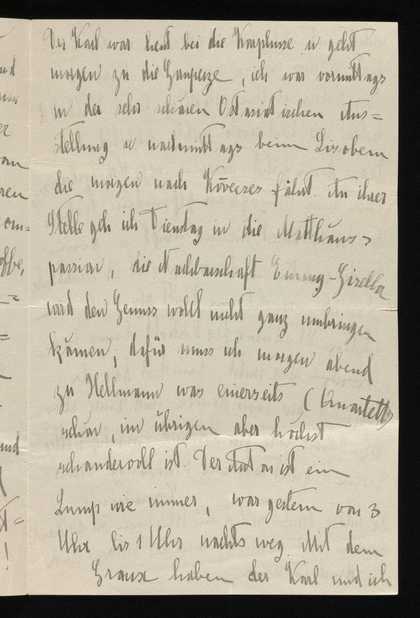 Der Karl war heut bei die Kraplusse u geht
morgen zu die Ganpeize, ich war vormittags
in der sehr schönen Ostasiatischen Aus=
stellung u nachmittags beim Lisobern
die morgen nach Kövecses fährt. An ihrer
Stelle geh ich Dienstag in die Matthäus-
passion, die Nachbarschaft Emmy-Gisella
wird den Genuss wohl nicht ganz umbringen
können, dafür muss ich morgen abend
zu Hellmann was einerseits (Quartett)
schön, im übrigen aber höchst
schandervoll ist. Der ist ein
Lump wie immer, war gestern von 3
Uhr bis 1 Uhr nachts weg. Mit dem
haben der Karl und ich